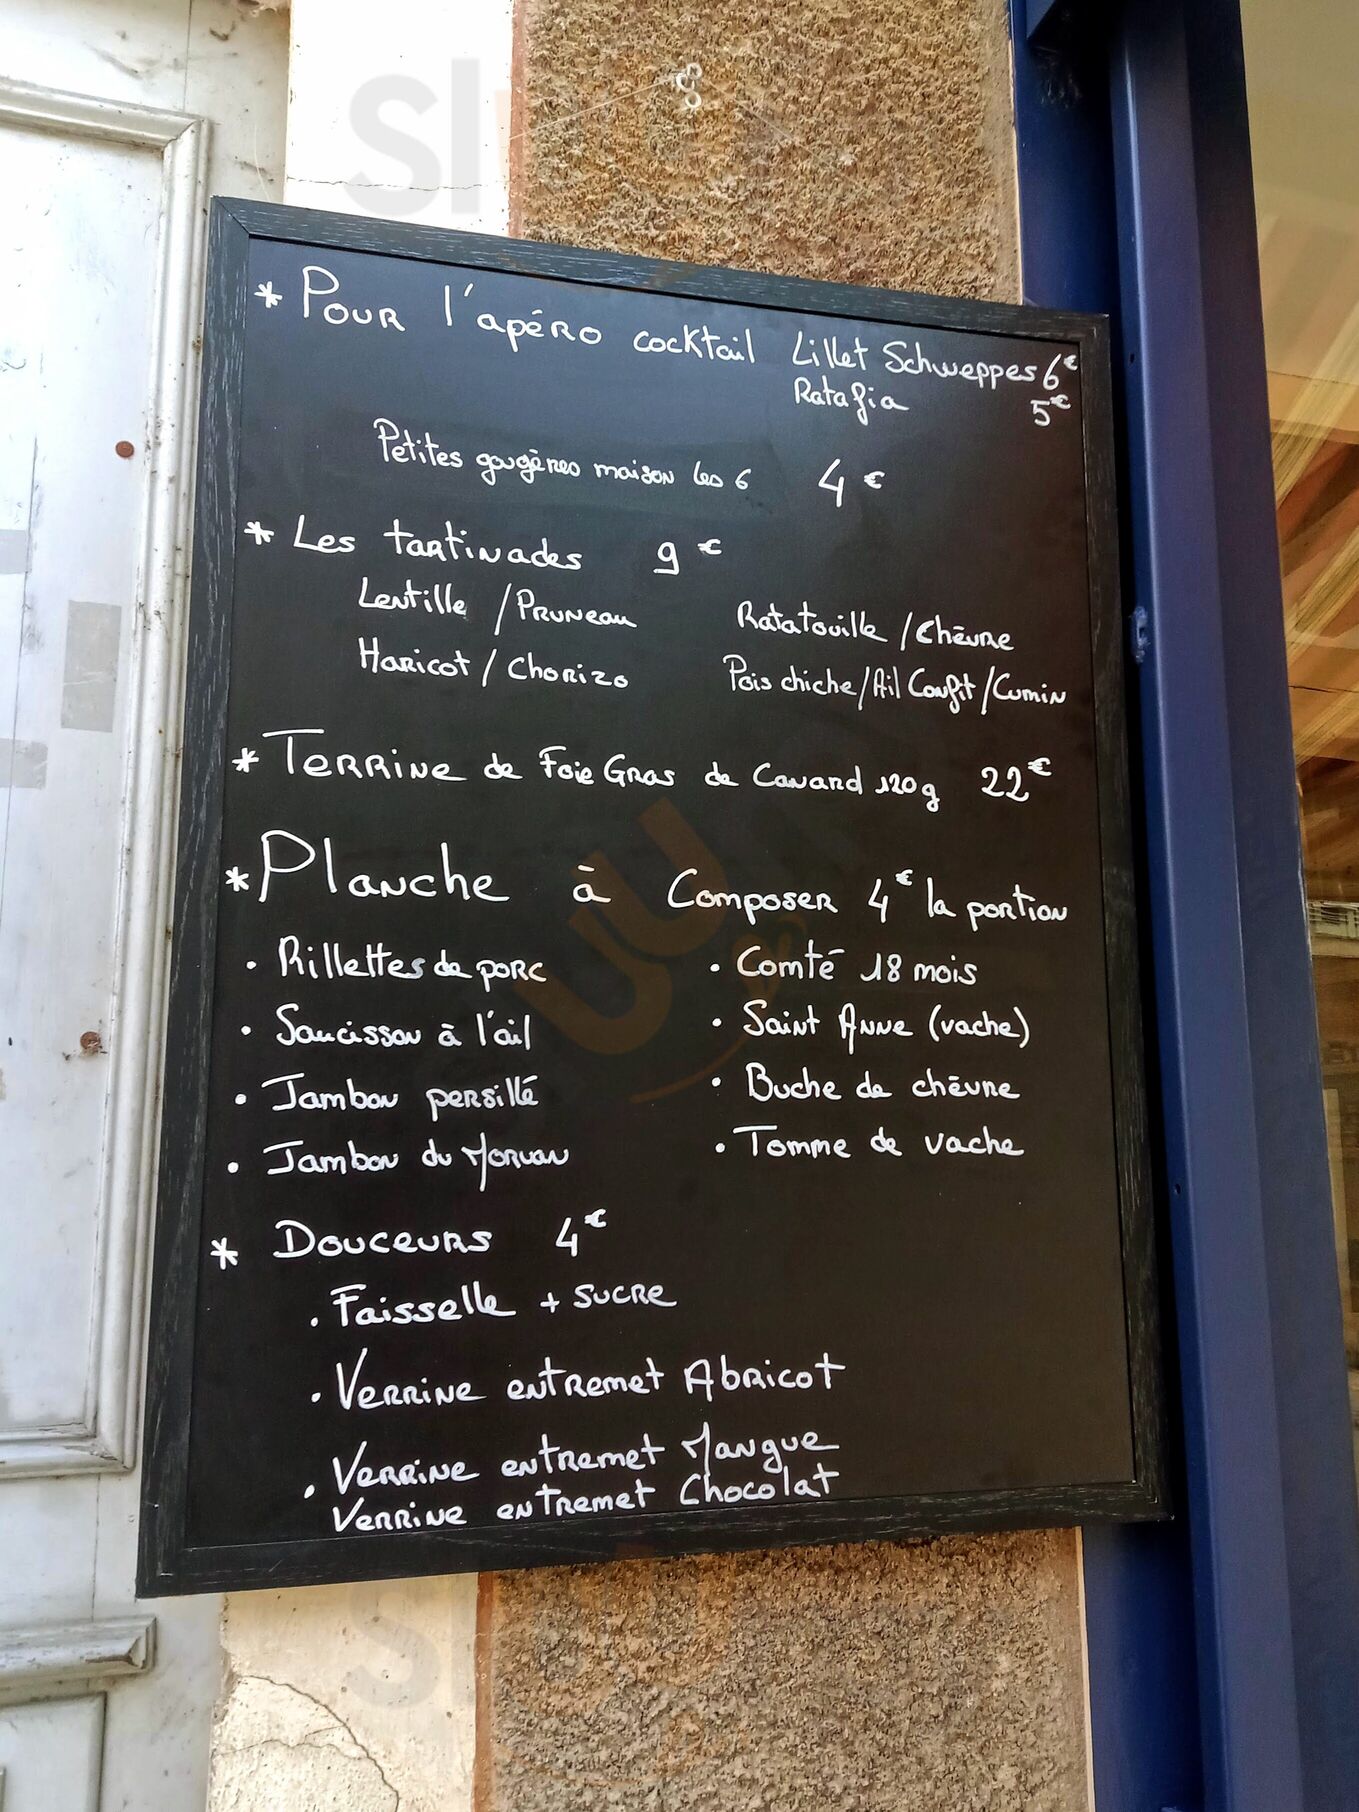 * Pour l'apéro cocktail Lillet Schweppes 6€
Ratafia 5€
Petites gougères maison les 6 4€
* Les tartinades 9€
Lentille / Pruneau Ratatouille / Chèvre
Haricot / Chorizo Pois chiche / Ail Confit / Cumin
* Terrine de Foie Gras de Canard 120g 22€
* Planche à Composer 4€ la portion
• Rillettes de porc • Comté 18 mois
• Saucisson à l'ail • Saint Anne (vache)
• Jambon persillé • Buche de chèvre
• Jambon du Morvan • Tomme de vache
* Douceurs 4€
• Faisselle + sucre
• Verrine entremet Abricot
• Verrine entremet Mangue
Verrine entremet Chocolat